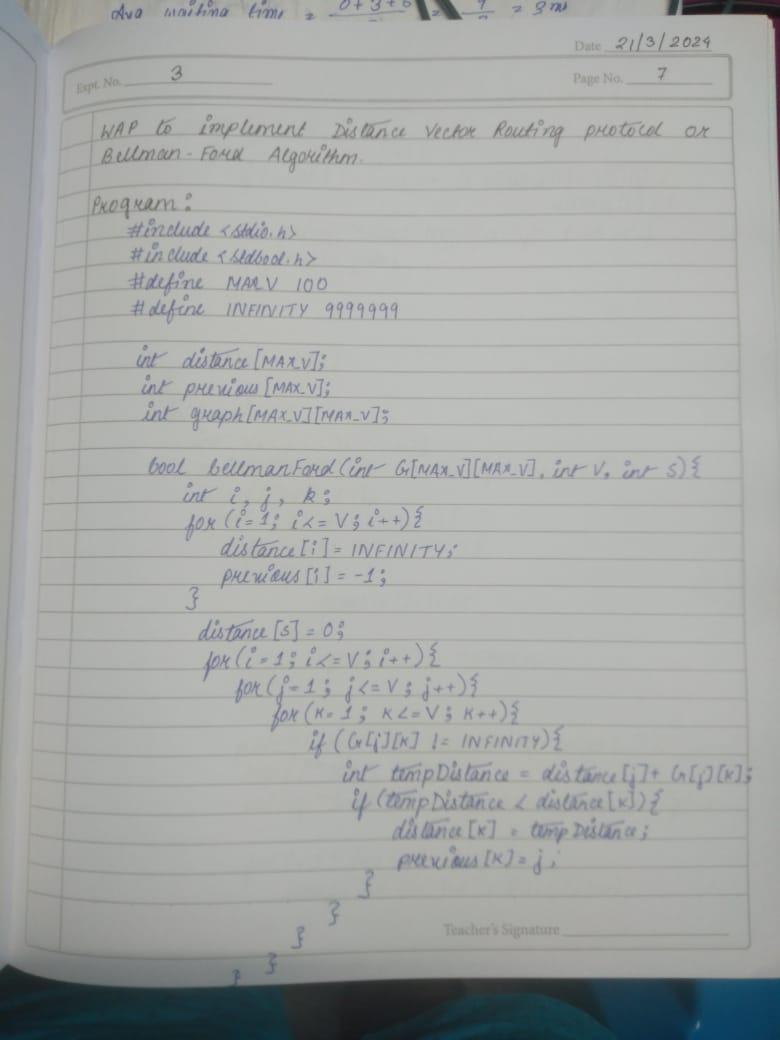 Avg waiting time = 0+3+6 = 9 = 3 ms
Date 21/3/2024
Expt. No. 3
Page No. 7
WAP to implement Distance Vector Routing protocol or
Bellman-Ford Algorithm.
Program:
#include <stdio.h>
#include <stdbool.h>
#define MAX_V 100
#define INFINITY 9999999
int distance[MAX_V];
int previous[MAX_V];
int graph[MAX_V][MAX_V];
bool bellmanFord(int G[MAX_V][MAX_V], int V, int S){
int i, j, k;
for (i=1; i<=V; i++){
distance[i] = INFINITY;
previous[i] = -1;
}
distance[S] = 0;
for(i=1; i<=V; i++){
for(j=1; j<=V; j++){
for(k=1; k<=V; k++){
if (G[j][k] != INFINITY){
int tempDistance = distance[j]+ G[j][k];
if (tempDistance < distance[k]){
distance[k] = tempDistance;
previous[k] = j;
}
}
}
}
}
Teacher's Signature